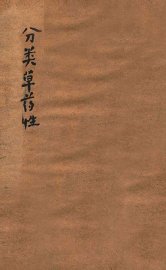 分类草药性